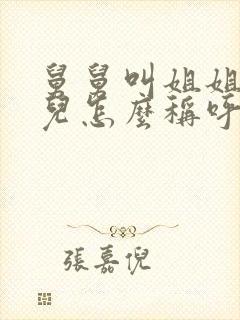 舅舅叫姐姐
兒怎麼稱呼
張嘉倪